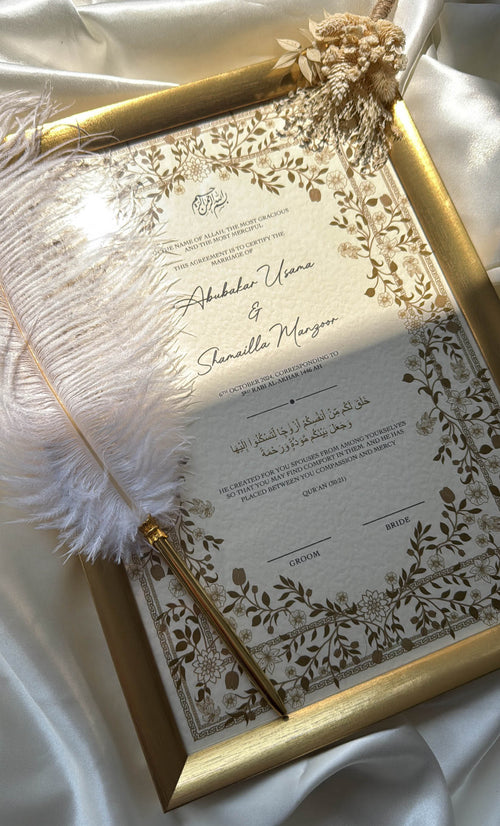 بسم الله الرحمن الرحيم
IN THE NAME OF ALLAH, THE MOST GRACIOUS
AND THE MOST MERCIFUL
THIS AGREEMENT IS TO CERTIFY THE
MARRIAGE OF
Abubakar Usama
&
Shamailla Manzoor
6TH OCTOBER 2024, CORRESPONDING TO
3RD RABI AL-AKHAR 1446 AH
خَلَقَ لَكُم مِّنْ أَنفُسِكُمْ أَزْوَاجًا لِّتَسْكُنُوا إِلَيْهَا
وَجَعَلَ بَيْنَكُم مَّوَدَّةً وَرَحْمَةً
HE CREATED FOR YOU SPOUSES FROM AMONG YOURSELVES
SO THAT YOU MAY FIND COMFORT IN THEM. AND HE HAS
PLACED BETWEEN YOU COMPASSION AND MERCY
QUR'AN (30:21)
GROOM
BRIDE